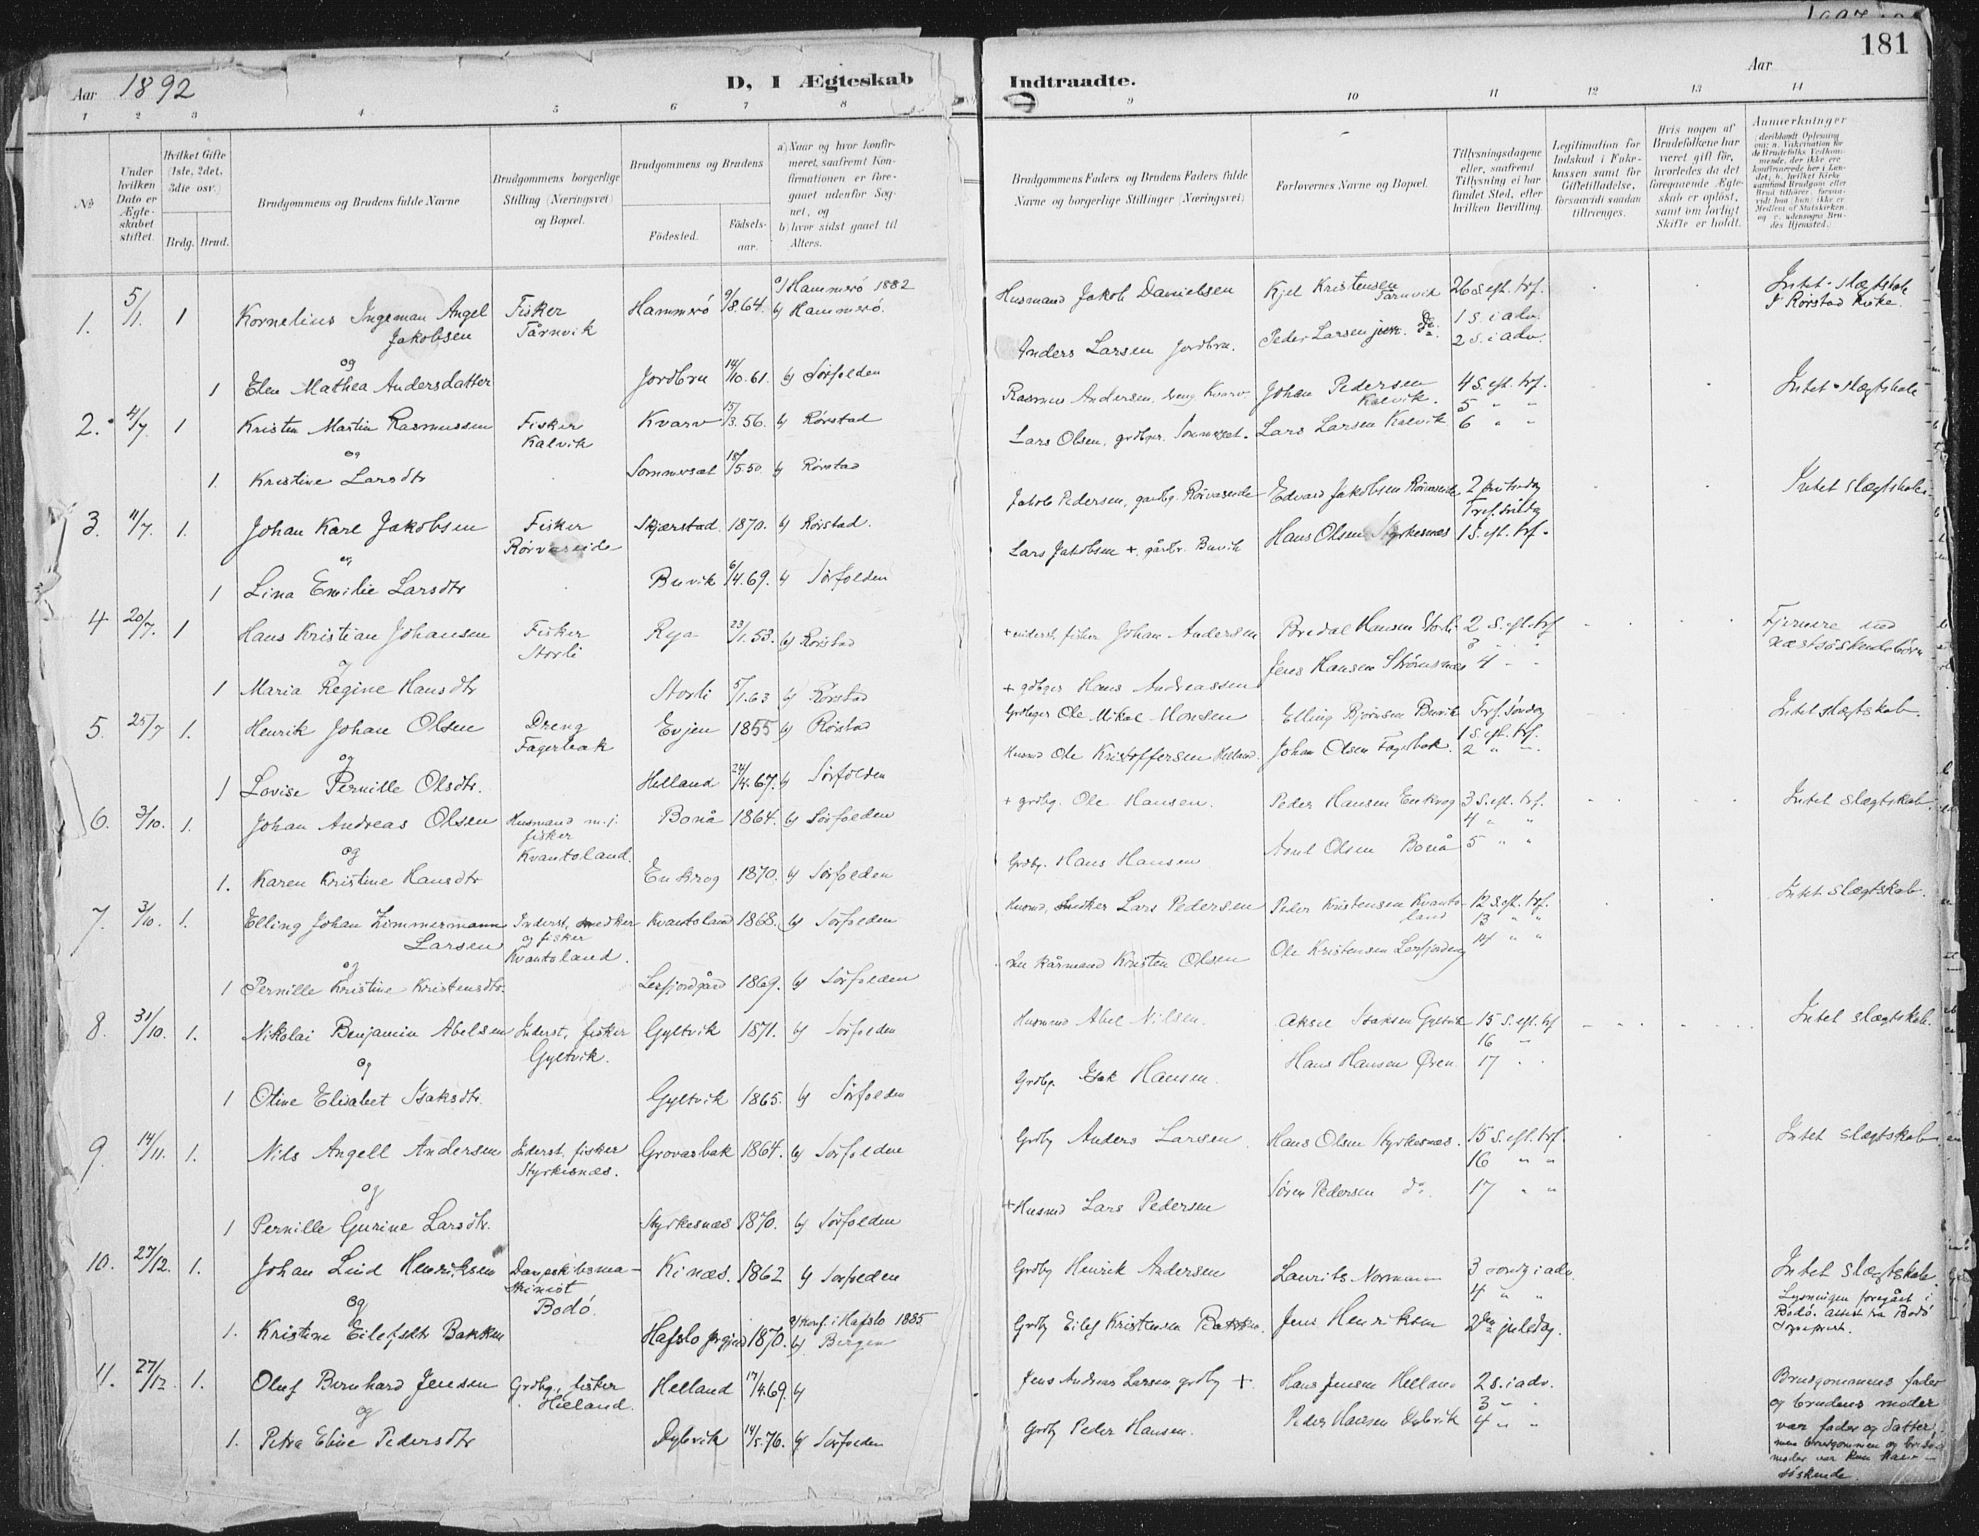 181
Aar 1892
D, I Ægteskab Indtraadte.
Aar
1 2 3 4 5 6 7 8 9 10 11 12 13 14
№
Under hvilken Dato er Ægteskabet stiftet.
Hvilket Gifte (1ste, 2det, 3die osv.)
Brdg. Brud.
Brudgommens og Brudens fulde Navne
Brudgommens borgerlige Stilling (Næringsvei) og Bopæl.
Brudgommens og Brudens
Fødested. Fødsels-aar.
a) Naar og hvor konfirmeret, saafremt Konfirmationen er foregaaet udenfor Sognet, og
b) hvor sidst gaaet til Alters.
Brudgommens Faders og Brudens Faders fulde Navne og borgerlige Stillinger (Næringsvei)
Forlovernes Navne og Bopæl.
Tillysningsdagene eller, saafremt Tillysning ei har fundet Sted, efter hvilken Bevilling.
Legitimation for Indskud i Enkekassen samt for Giftetilladelse, forsaavidt saadan tiltrænges.
Hvis nogen af Brudefolkene har været gift før, hvorledes da det foregaaende Ægteskab er opløst, samt om lovligt Skifte er holdt.
Anmærkninger
1. 5/1. 1 Kornelius Ingeman Angel Jakobsen Fisker Tårnvik Hammerö 9/8.64. a) Hammerö 1882 b) Hammerö. Husmand Jakob Danielsen Kjel Kristensen Tårnvik 26 s. eft. trf. Intet slægtskab
I Rörstad kirke.
og
1 Elen Mathea Andersdatter Jordbru 14/10.61. b) Sörfolden Anders Larsen Jordbru. Peder Larsen jun. do. 1 s. i adv.
2 s. i adv.
2. 4/7. 1 Kristen Martin Rasmussen Fisker Kalvik Kvarv 15/3.56. b) Rörstad Rasmus Andersen, Kvarv Johan Pedersen Kalvik. 4 S. eft. trf. Intet slægtskab
5 " "
og
1. Kristine Larsdtr Sommerset 18/5.50. b) Rörstad Lars Olsen, grdbr. Sommerset. Lars Larsen Kalvik 6 " "
3. 11/7. 1. Johan Karl Jakobsen Fisker Rörvaseide Skjerstad 1870. b) Rörstad. Jakob Pedersen, gaardbr. Rörvaseide Edvard Jakobsen Rörvaseide 2 pintsedag Intet slægtskab.
Tref. Söndag
og
1 Lina Emilie Larsdtr Buvik 6/4.69. b) Sörfolden Lars Jakobsen +. gårbr. Buvik Hans Olsen Styrkesnæs 1 S. eft. trf.
4 20/7. 1 Hans Kristian Johansen Fisker Storli Rya 23/1.53. b) Rörstad + inderst, fisker Johan Andersen Bredal Hansen Storli 2 S. eft. trf Fjernere end næstsöskendebörn
3 " "
og
1 Maria Regine Hansdtr Storli 5/1.63 b) Rörstad + Hans Andreassen Jens Hansen Strömsnæs 4 " "
5. 25/7 1. Henrik Johan Olsen Dreng Fagerbak Evjen 1855 b) Rörstad Ole Mikal Monsen Elling Björnsen Buvik Tref. Söndag Intet slægtskab.
1 S. eft. trf.
og
1 Lovise Pernille Olsdtr. Helland 24/4.67. b) Sörfolden Husmd Ole Kristoffersen Helland. Johan Olsen Fagerbak. 2 " "
6. 3/10. 1. Johan Andreas Olsen Husmand m. j. fisker Kvantoland. Bonå 1864. b) Sörfolden + grdbg. Ole Hansen. Peder Hansen Enkrog 3 S. eft. trf. Intet slægtskab.
4 " "
og
1. Karen Kristine Hansdtr Enkrog 1870. b) Sörfolden Grdbg. Hans Hansen Olsen Bonå 5 " "
7. 3/10. 1. Elling Johan Zimmermann Larsen Inderst, snedker og fisker Kvantoland. Kvantoland 1868. b) Sörfolden Husmd, snedker Lars Pedersen Peder Kristensen Kvantoland 12 S. eft. trf. Intet slægtskab.
13 " "
14 " "
og
1 Pernille Kristine Kristensdtr. Lersfjordgård 1869. b) Sörfolden Kårmand Kristen Olsen Ole Kristensen
8. 31/10. 1. Nikolai Benjamin Abelsen Inderst, fisker Gyltvik. Gyltvik 1871. b) Sörfolden Husmd Abel Nilsen. Aksel Isaksen Gyltvik 15 S. eft. trf Intet slægtskab.
16 "
og
1 Oline Elisabet Isaksdtr. Gyltvik 1865. b) Sörfolden Grdbg. Isak Hansen. Hans Hansen Øren. 17 " "
9. 14/11. 1. Nils Angell Andersen Inderst, fisker Styrkesnæs. Grovasbak 1864. b) Sörfolden Grdbg Anders Larsen. Hans Olsen Styrkesnæs. 15 S. eft. trf Intet slægtskab
16 " "
og
1 Pernille Gurine Larsdtr. Styrkesnæs 1870. b) Sörfolden + Husmd Lars Pedersen Sören Pedersen do. 17 " "
10. 27/12. 1. Johan Lind Henriksen Dampskibsmaskinist Bodö. Kinæs. 1862 b) Sörfolden Grdbg Henrik Andersen Laurits Normann 3 söndg i adv. Intet slægtskab.
4 " "
Lysningen foregået i Bodö. Attest fra Bodö Sogneprest.
og
1. Kristine Eilefsdtr Bakken Hafslo prgjeld 1870. a) konf. i Hafslo 1885 b) Bergen Grdbg Eilef Kristensen Bakken. Jens Henriksen 2den juledag.
11. 27/12 1. Oluf Bernhard Jensen Grdbg., fisker Helland. Helland 17/4.69. b) Jens Andreas Larsen grdbg + Hans Jensen Helland 2 s. i adv.
3 " "
og
1. Petra Eline Pedersdtr Dybvik 14/5.76. b) Sörfolden Grdbg Peder Hansen. Peder Hansen Dybvik 4 " "
Brudgommens fader og brudens moder var fader og datter, men brudgommen og brudens moder var kun halvsöskende.